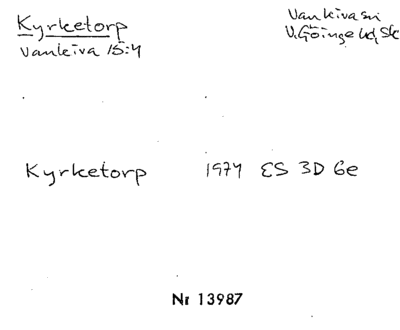 Kyrketorp
Vankiva 15:4
Vankiva sn
V. Göinge hd, Sk
Kyrketorp 1974 ES 3D 6e
Nr 13987